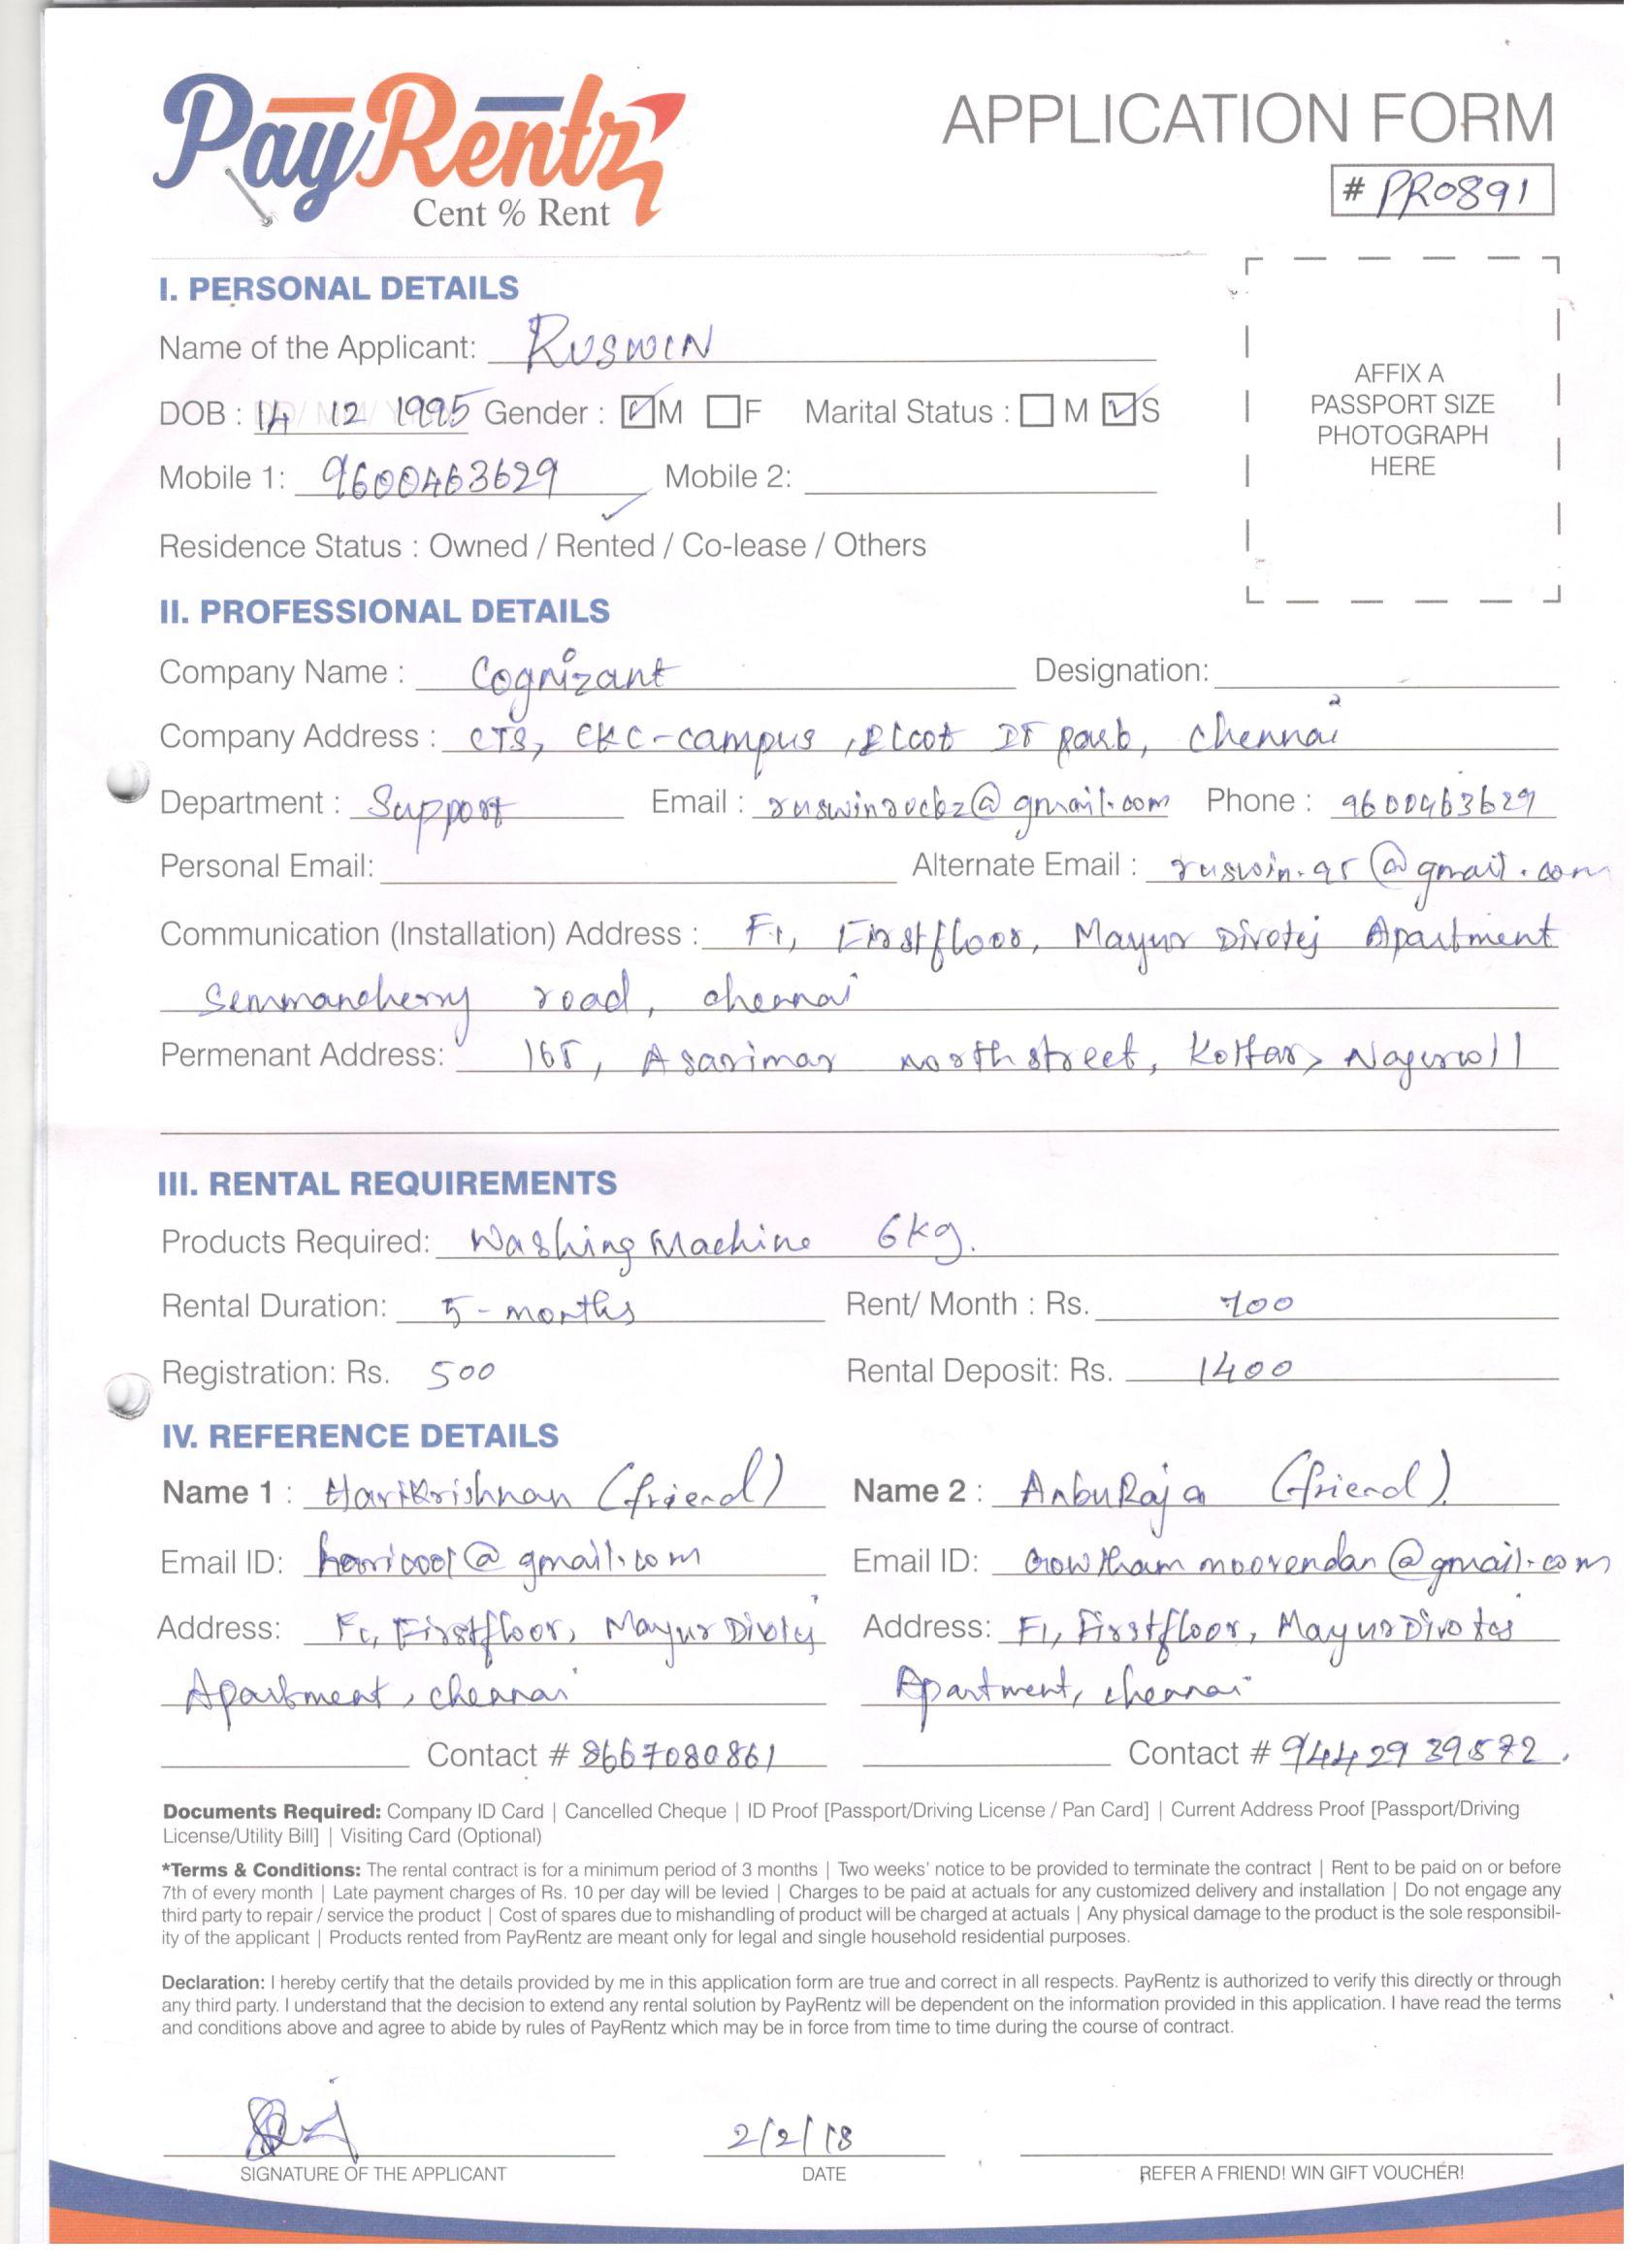 PayRentz
Cent % Rent
APPLICATION FORM
# PR0891
I. PERSONAL DETAILS
Name of the Applicant: RUSWIN
DOB : 14 12 1995 Gender : M F Marital Status : M S
Mobile 1: 9600463629 Mobile 2:
Residence Status : Owned / Rented / Co-lease / Others
AFFIX A
PASSPORT SIZE
PHOTOGRAPH
HERE
II. PROFESSIONAL DETAILS
Company Name : Cognizant Designation:
Company Address : CTS, CKC-campus, Elcot IT park, Chennai
Department : Support Email : ruswinrockz@gmail.com Phone : 9600463629
Personal Email: Alternate Email : ruswin.95@gmail.com
Communication (Installation) Address : F1, First floor, Mayur Divotej Apartment
Semmancherry road, chennai
Permenant Address: 165, Asarimar north street, Kottar,
III. RENTAL REQUIREMENTS
Products Required: Washing Machine 6kg.
Rental Duration: 5 - months Rent/ Month : Rs. 700
Registration: Rs. 500 Rental Deposit: Rs. 1400
IV. REFERENCE DETAILS
Name 1 : HariKrishnan (friend) Name 2 : AnbuRaja (friend).
Email ID: @gmail.com Email ID: Gowtham moovendan@gmail.com
Address: F1, First floor, Mayur Address: F1, First floor, Mayur
Apartment, chennai Apartment, chennai
Contact # 8667080861 Contact # 9442939572.
Documents Required: Company ID Card | Cancelled Cheque | ID Proof [Passport/Driving License / Pan Card] | Current Address Proof [Passport/Driving
License/Utility Bill] | Visiting Card (Optional)
*Terms & Conditions: The rental contract is for a minimum period of 3 months | Two weeks' notice to be provided to terminate the contract | Rent to be paid on or before
7th of every month | Late payment charges of Rs. 10 per day will be levied | Charges to be paid at actuals for any customized delivery and installation | Do not engage any
third party to repair / service the product | Cost of spares due to mishandling of product will be charged at actuals | Any physical damage to the product is the sole responsibil-
ity of the applicant | Products rented from PayRentz are meant only for legal and single household residential purposes.
Declaration: I hereby certify that the details provided by me in this application form are true and correct in all respects. PayRentz is authorized to verify this directly or through
any third party. I understand that the decision to extend any rental solution by PayRentz will be dependent on the information provided in this application. I have read the terms
and conditions above and agree to abide by rules of PayRentz which may be in force from time to time during the course of contract.
2/2/18
SIGNATURE OF THE APPLICANT DATE REFER A FRIEND! WIN GIFT VOUCHER!